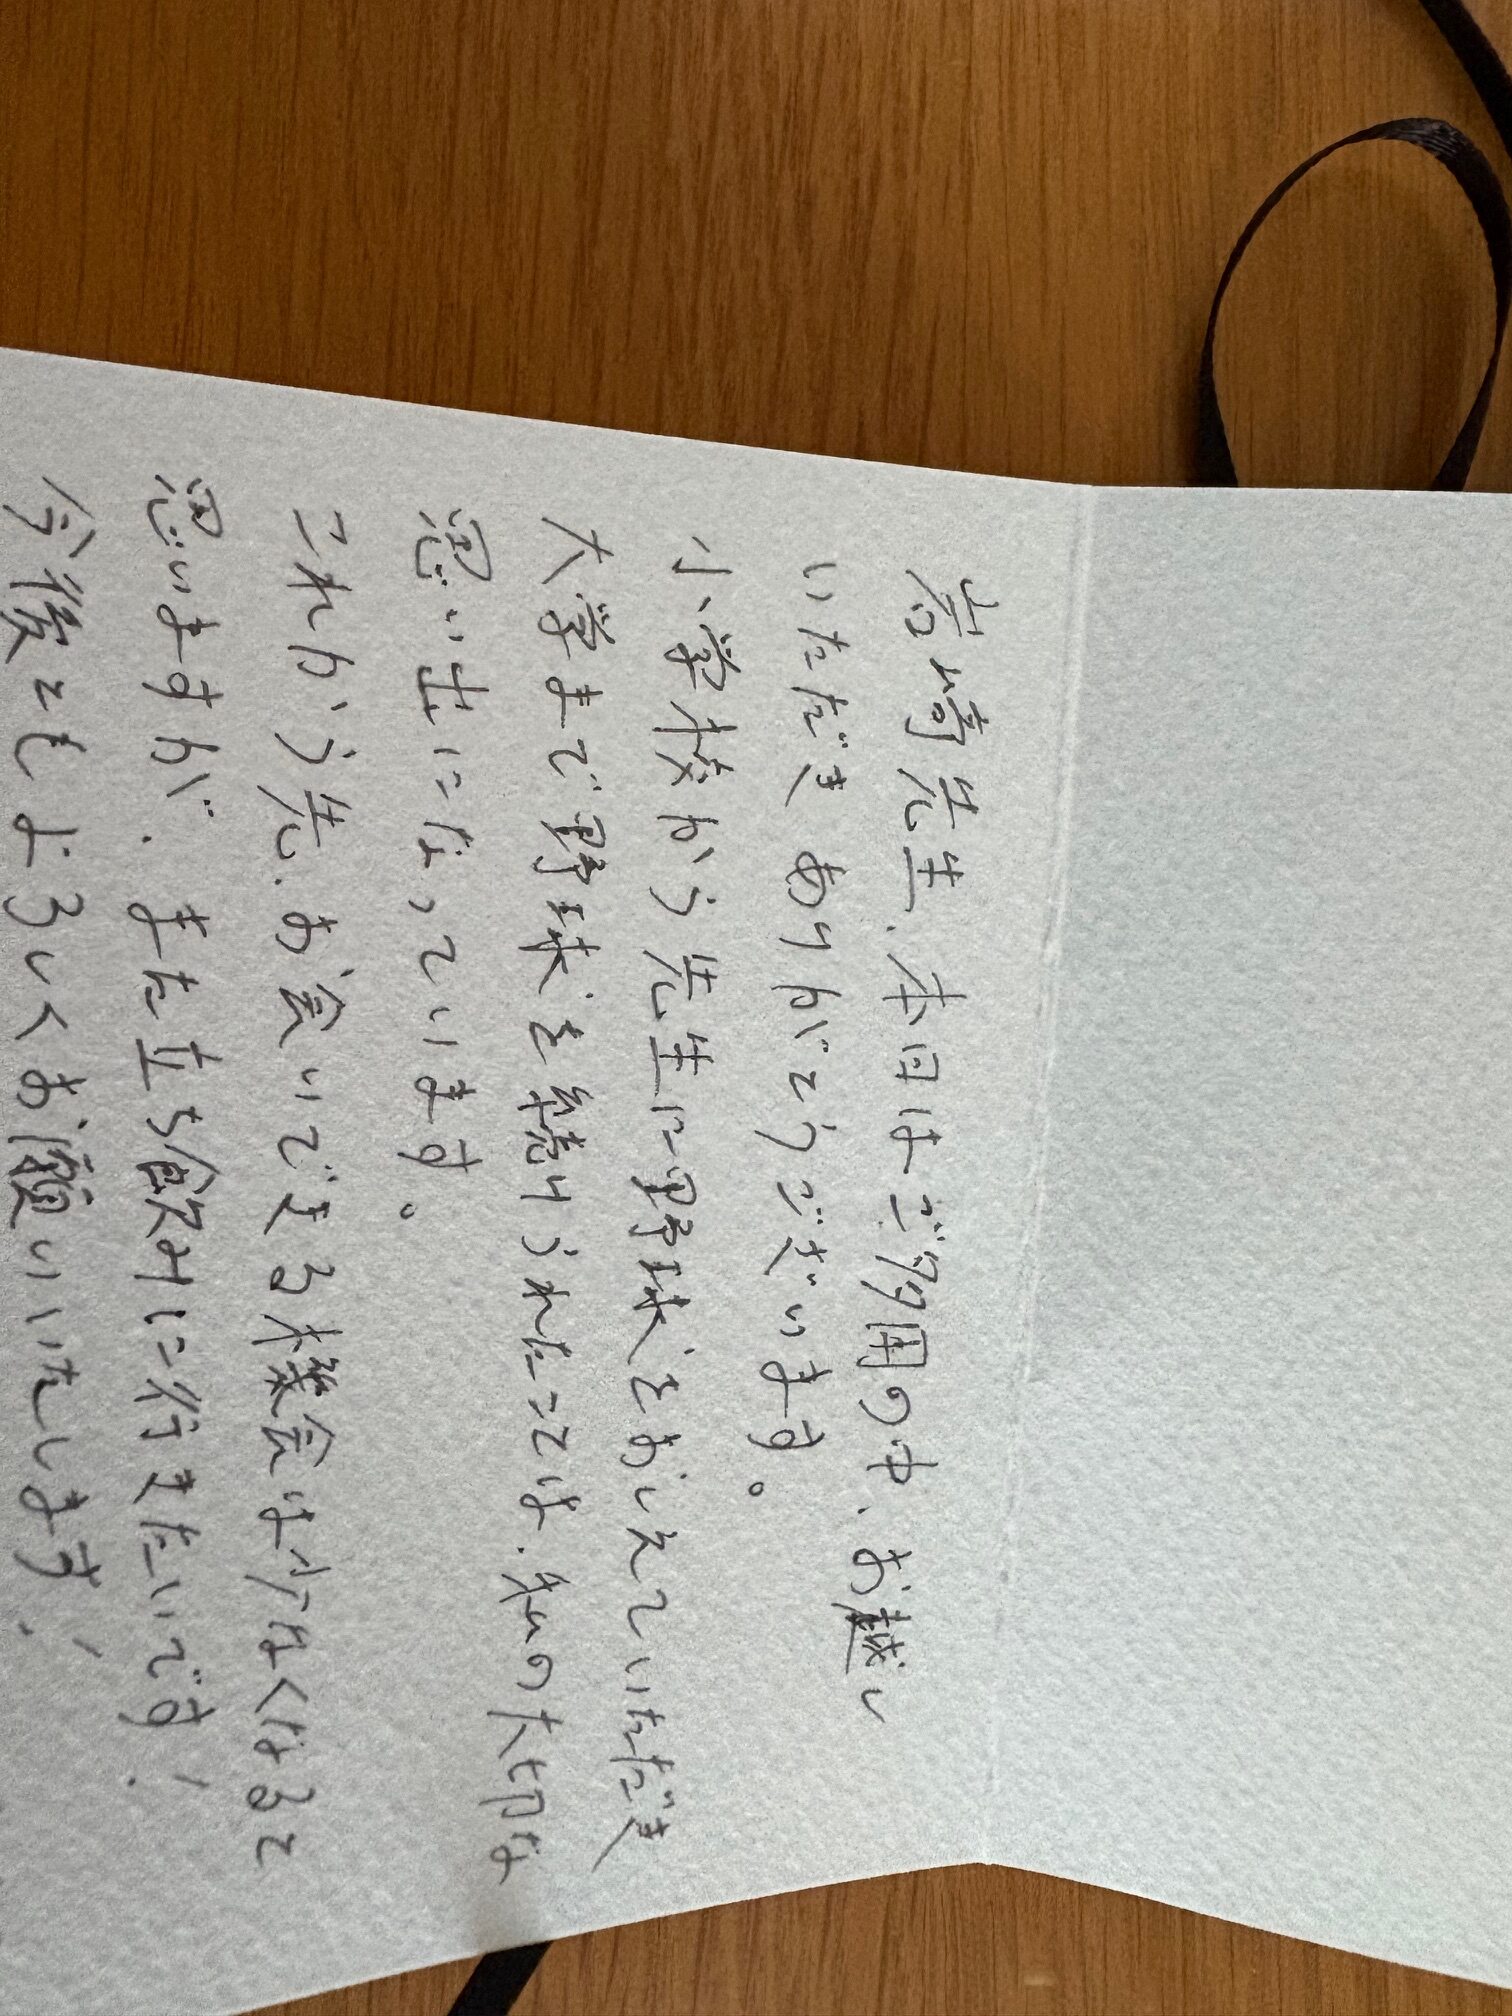 岩崎先生、本日はご多用の中、お越し
いただき ありがとうございます。
小学校から先生に野球をおしえていただき
大学まで野球を続けられたことは、私の大切な
思い出になっています。
これから先、お会いできる機会は少なくなると
思いますが、また立ち飲みに行きたいです!
今後ともよろしくお願いいたします!